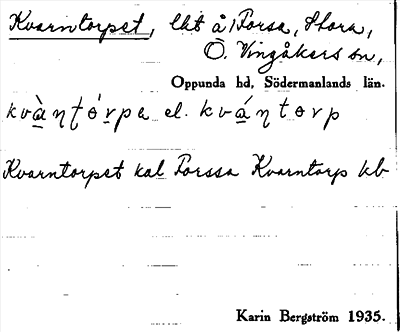 Kvarntorpet, lht å Forsa, Stora,
Ö. Vingåkers sn,
Oppunda hd, Södermanlands län.
kvàɳʈórpe el. kváɳʈorp
Kvarntorpet kal Forssa Kvarntorp kb
Karin Bergström 1935.